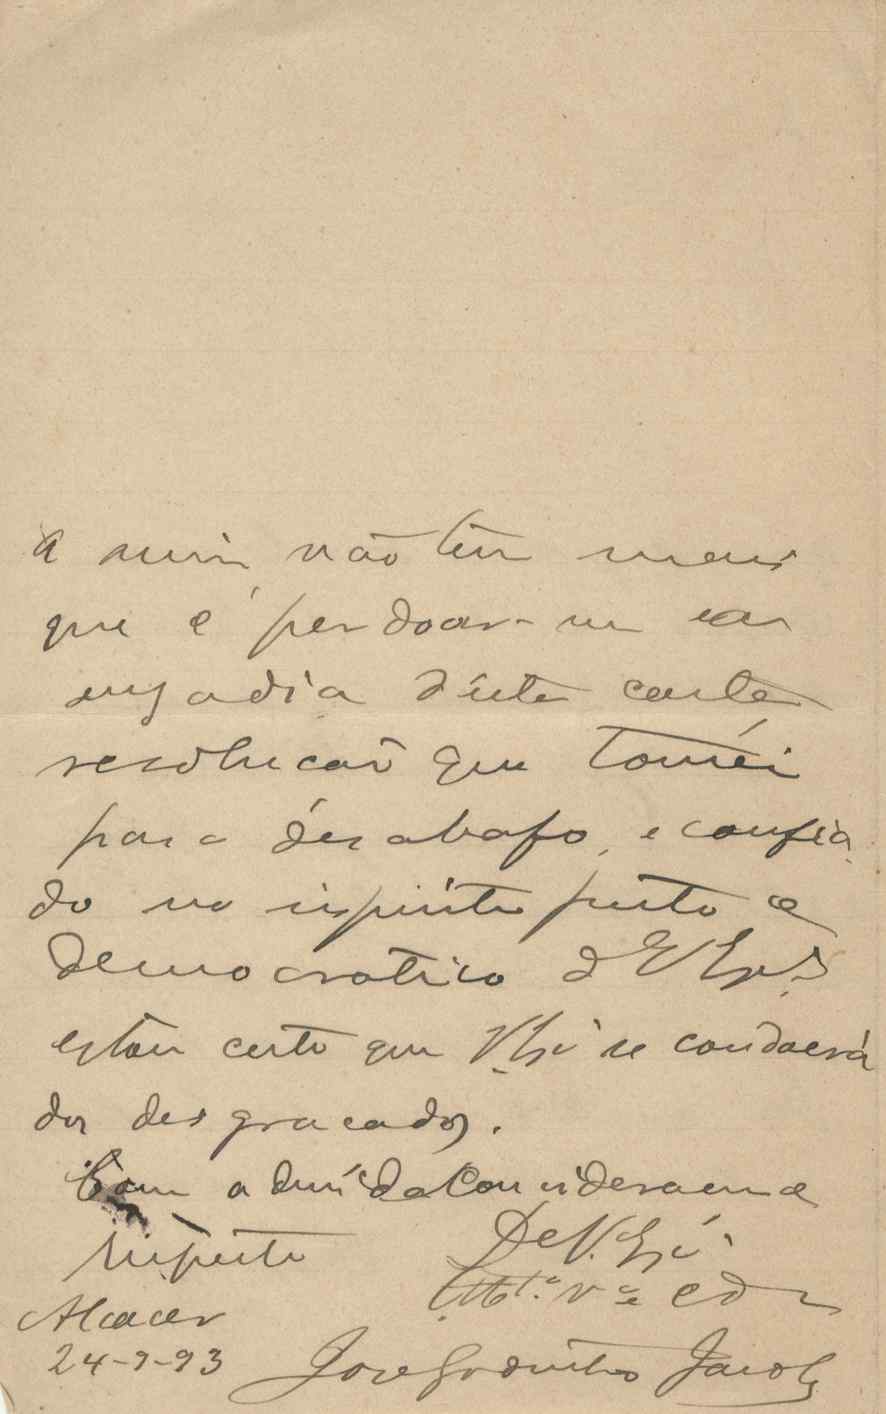 a mim não tem mais
que é perdoar-me a
ousadia d'esta carta
resolucaõ que toméi
para désabafo, e confia
do no ispirito justo e
democratico d'V Ex.ª
estou certo que V. Exª se condoerá
dos desgracados.
Com a divída Consideracaõ e
rispeito De V. Exª
Mtº. vºr
Alcacer
24-9-93 Jose Godinho Jacob